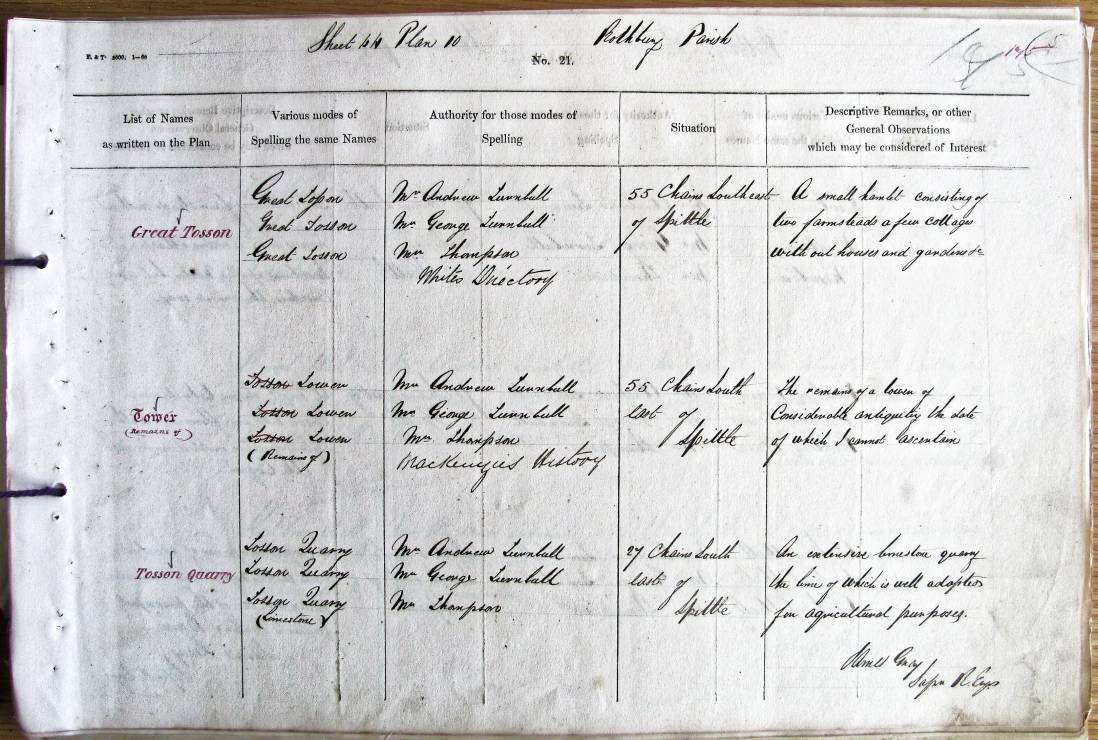 Sheet 44 Plan 10 Rothbury Parish
E. & T. 2600; 1–60
No. 21.
List of Names
as written on the Plan
Various modes of
Spelling the same Names
Authority for those modes of
Spelling
Situation
Descriptive Remarks, or other
General Observations
which may be considered of Interest
Great Tosson
Great Tosson
Great Tosson
Great Tosson
Mr Andrew Turnbull
Mr George Turnbull
Mr Thompson
Whites Directory
55 Chains South east
of Spittle
A small hamlet consisting of
two farmsteads a few cottages
with out houses and gardens &c
Tower
(Remains of)
Tosson Tower
Tosson Tower
Tosson Tower
(Remains of)
Mr Andrew Turnbull
Mr George Turnbull
Mr Thompson
Mackenzies History
55 Chains South
east of
Spittle
The remains of a tower of
Considerable antiquity the date
of which I cannot ascertain
Tosson Quarry
Tosson Quarry
Tosson Quarry
Tosson Quarry
(Limestone)
Mr Andrew Turnbull
Mr George Turnbull
Mr Thompson
27 Chains South
east of
Spittle
An extensive limestone quarry
the lime of which is well adapted
for agricultural purposes.
James Gray
Sapr R. Engs